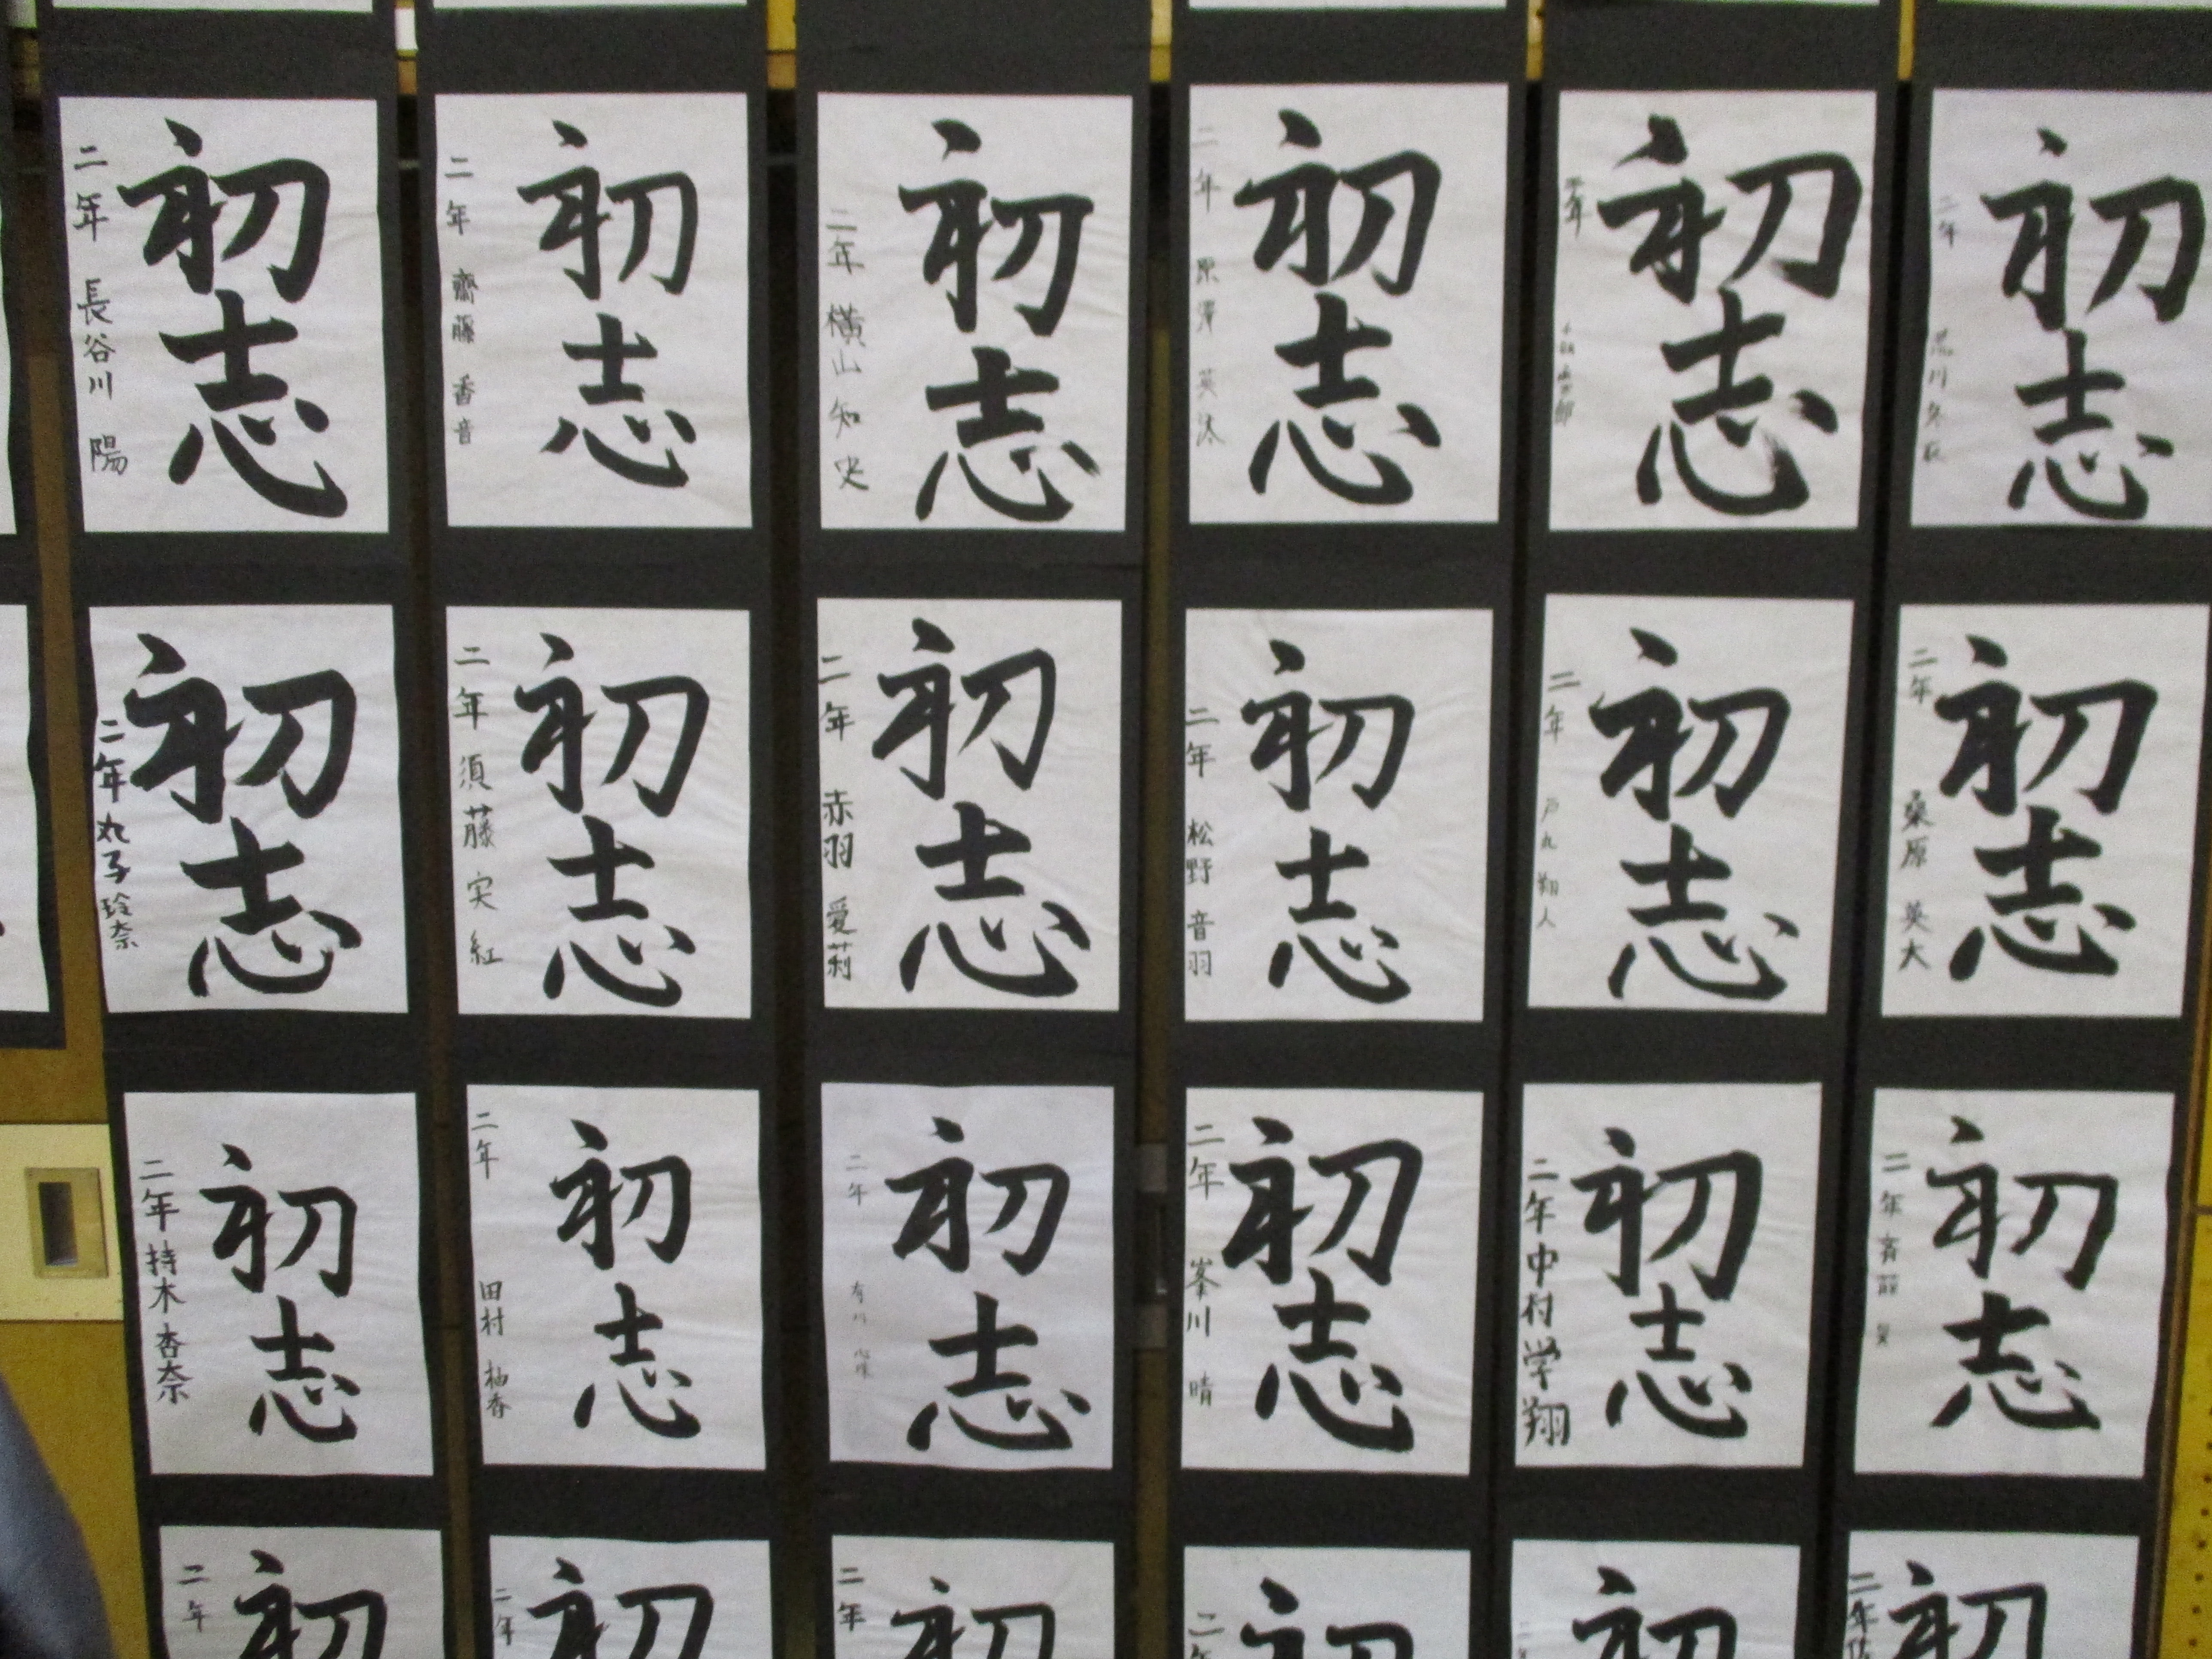 初志
二年 長谷川 陽
初志
二年 齋藤 香音
初志
二年 横山 知史
初志
二年 英汰
初志
初志
二年 川
初志
二年 丸子 玲奈
初志
二年 須藤 実紅
初志
二年 赤羽 愛莉
初志
二年 松野 音羽
初志
二年 戸丸 翔人
初志
二年 桑原 英大
初志
二年 持木 杏奈
初志
二年 田村 柚香
初志
二年 有川
初志
二年 峯川 晴
初志
二年 中村 学翔
初志
二年
初
二年
初
二年
初
二年
初
二年
初
初
二年